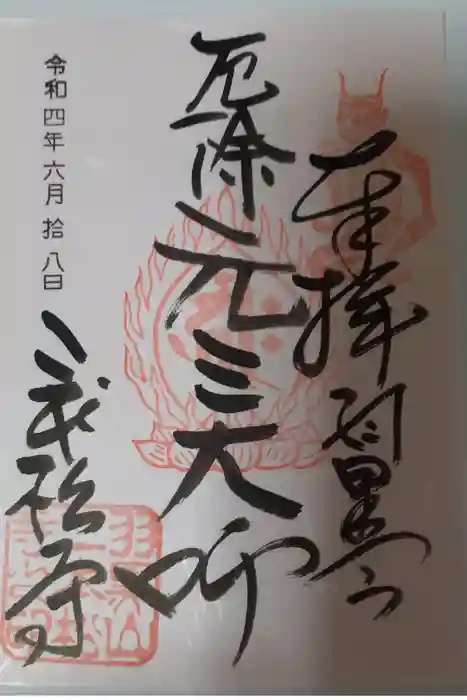 奉拝 羽黒山
厄除 元三大師
令和四年六月拾八日
松寺